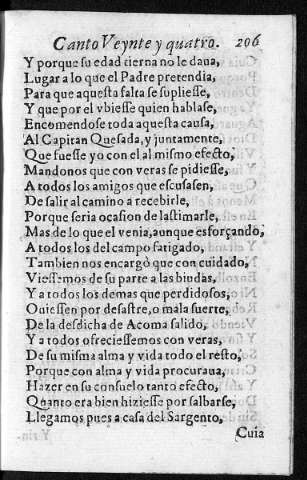 Canto Veynte y quatro. 206
Y porque su edad tierna no le daua,
Lugar a lo que el Padre pretendia,
Para que aquesta falta se supliesse,
Y que por el vbiesse quien hablase,
Encomendose toda aquesta causa,
Al Capitan Quesada, y juntamente,
Que fuesse yo con el al mismo efecto,
Mandonos que con veras se pidiesse,
A todos los amigos que escusasen,
De salir al camino a recebirle,
Porque seria ocasion de lastimarle,
Mas de lo que el venia, aunque esforçando,
A todos los del campo fatigado,
Tambien nos encargò que con cuidado,
Viessemos de su parte a las biudas,
Y a todos los demas que perdidosos,
Ouiessen por desastre, o mala suerte,
De la desdicha de Acoma salido,
Y a todos ofreciessemos con veras,
De su misma alma y vida todo el resto,
Porque con alma y vida procuraua,
Hazer en su consuelo tanto efecto,
Quanto era bien hiziesse por salbarse,
Llegamos pues a casa del Sargento,
Cuia